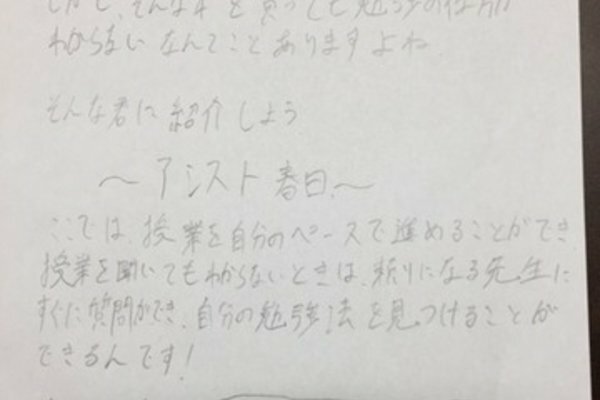 しかし、そんな本を買っても勉強の仕方が
わからないなんてことありますよね
そんな君に紹介しよう
～アシスト春日～
ここでは、授業を自分のペースで進めることができ、
授業を聞いてもわからないときは、頼りになる先生に
すぐに質問ができ、自分の勉強法を見つけることが
できるんです！